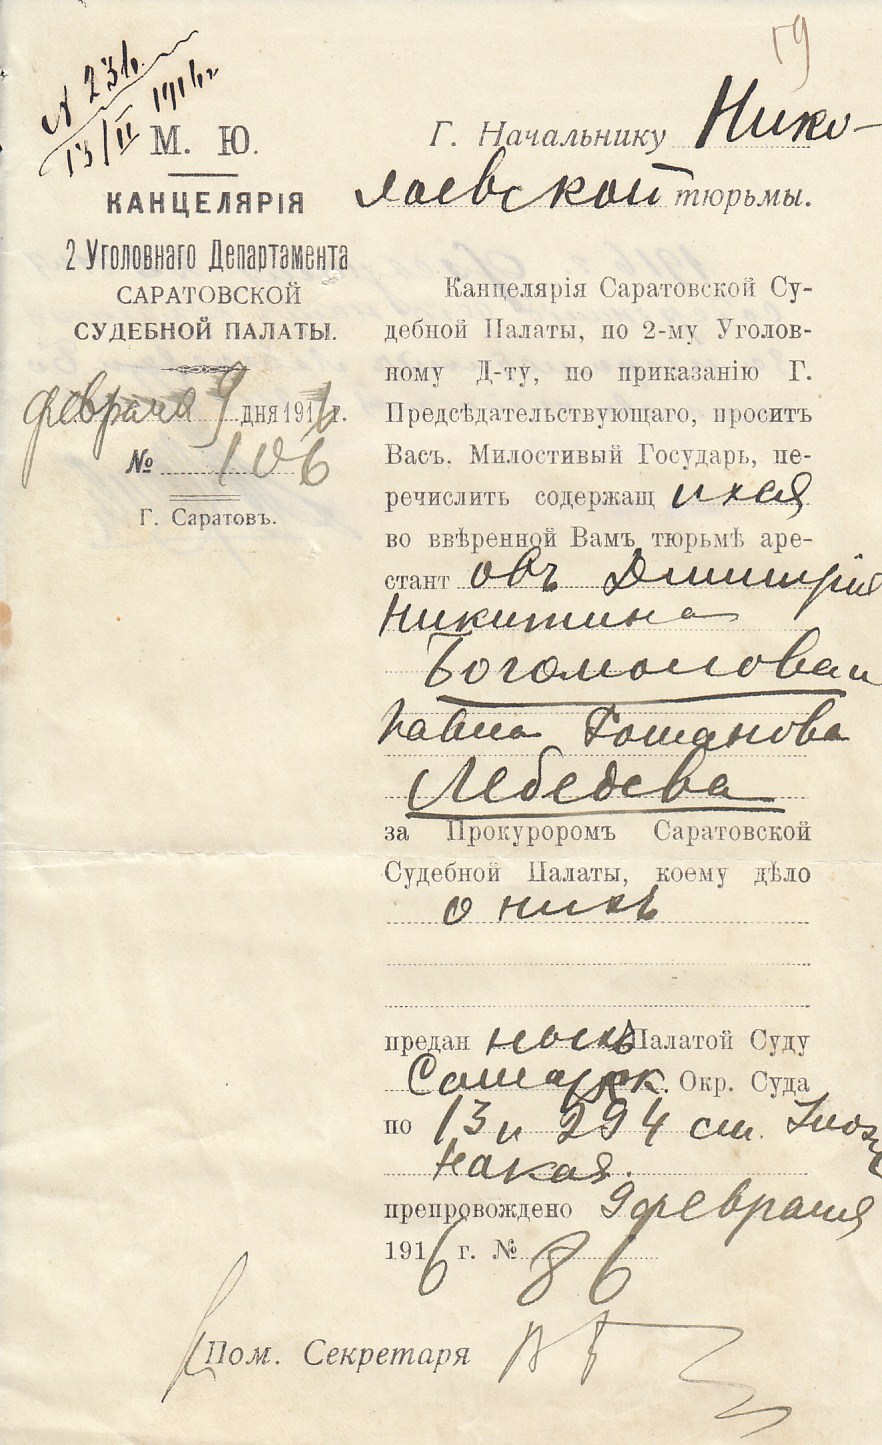 59
№ 236.
13/II 1916 г.
М. Ю.
КАНЦЕЛЯРІЯ
2 Уголовнаго Департамента
САРАТОВСКОЙ
СУДЕБНОЙ ПАЛАТЫ.
февраля 9 дня 1916 г.
№ 106
Г. Саратовъ.
Г. Начальнику Нико-
лаевской тюрьмы.
Канцелярія Саратовской Су-
дебной Палаты, по 2-му Уголов-
ному Д-ту, по приказанію Г.
Предсѣдательствующаго, проситъ
Васъ. Милостивый Государь, пе-
речислить содержащ ихся
во ввѣренной Вамъ тюрьмѣ аре-
стант овъ Дмитрія
Никитина
Богомолова и
Павла Романова
Лебедева
за Прокуроромъ Саратовской
Судебной Палаты, коему дѣло
о нихъ
предан ныхъ Палатой Суду
Самарск. Окр. Суда
по 13 и 294 ст. Улож.
Наказ.
препровождено 9 февраля
1916 г. № 86
Пом. Секретаря